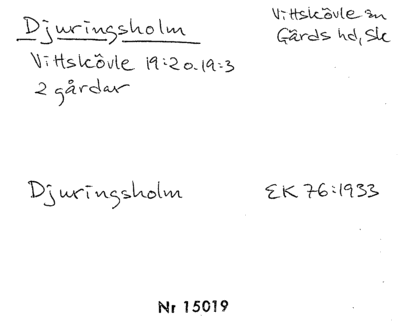 Djuringsholm
Vittskövle sn
Gärds hd, Sk
Vittskövle 19:2 o. 19:3
2 gårdar
Djuringsholm
EK 76:1933
Nr 15019